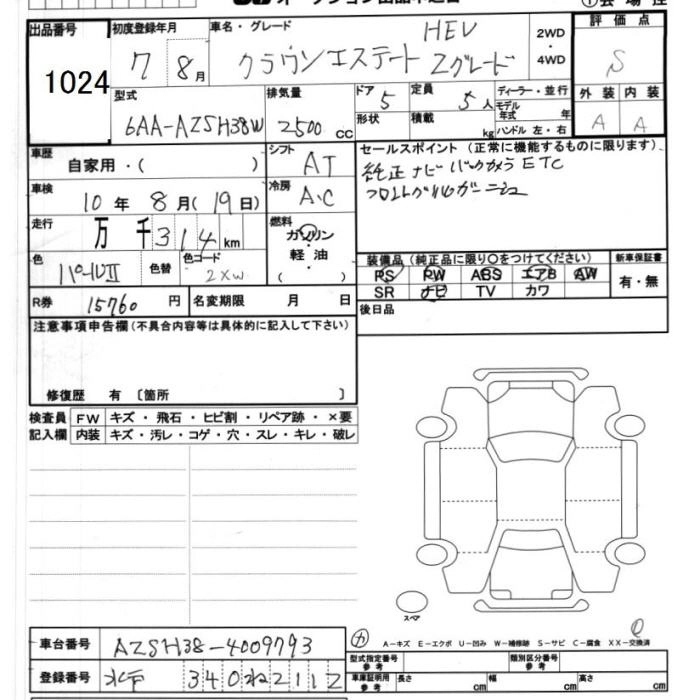 出品番号 1024
初度登録年月 7 8月
車名・グレード HEV
クラウンエステート Zグレード
2WD・4WD
評価点 S
外装 内装
A A
型式 6AA-AZSH38W
排気量 2500 CC
ドア 5
形状
定員 5人
積載 kg
ディーラー・並行
モデル年式 年
ハンドル 左・右
車歴 自家用・( )
シフト AT
セールスポイント(正常に機能するものに限ります)
純正ナビ バックカメラ ETC
フロントグリルガーニッシュ
車検 10年8月(19日)
冷房 A.C
走行 万千314km
燃料 ガソリン・軽油・( )
色 パールII
色替
色コード 2XW
装備品(純正品に限り○をつけてください)
PS PW ABS エアB AW
SR ナビ TV カワ
新車保証書
有・無
R券 15760円
名変期限 月 日
後日品
注意事項申告欄(不具合内容等は具体的に記入して下さい)
修復歴 有 〔箇所 〕
検査員記入欄
FW キズ・飛石・ヒビ割・リペア跡・×要
内装 キズ・汚レ・コゲ・穴・スレ・キレ・破レ
スペア
カ A-キズ E-エクボ U-凹み W-補修跡 S-サビ C-腐食 XX-交換済
車台番号 AZSH38-4009793
登録番号 水戸 340ね2112
型式指定番号 参考
類別区分番号 参考
車庫証明用 参考
長さ cm 幅 cm 高さ cm